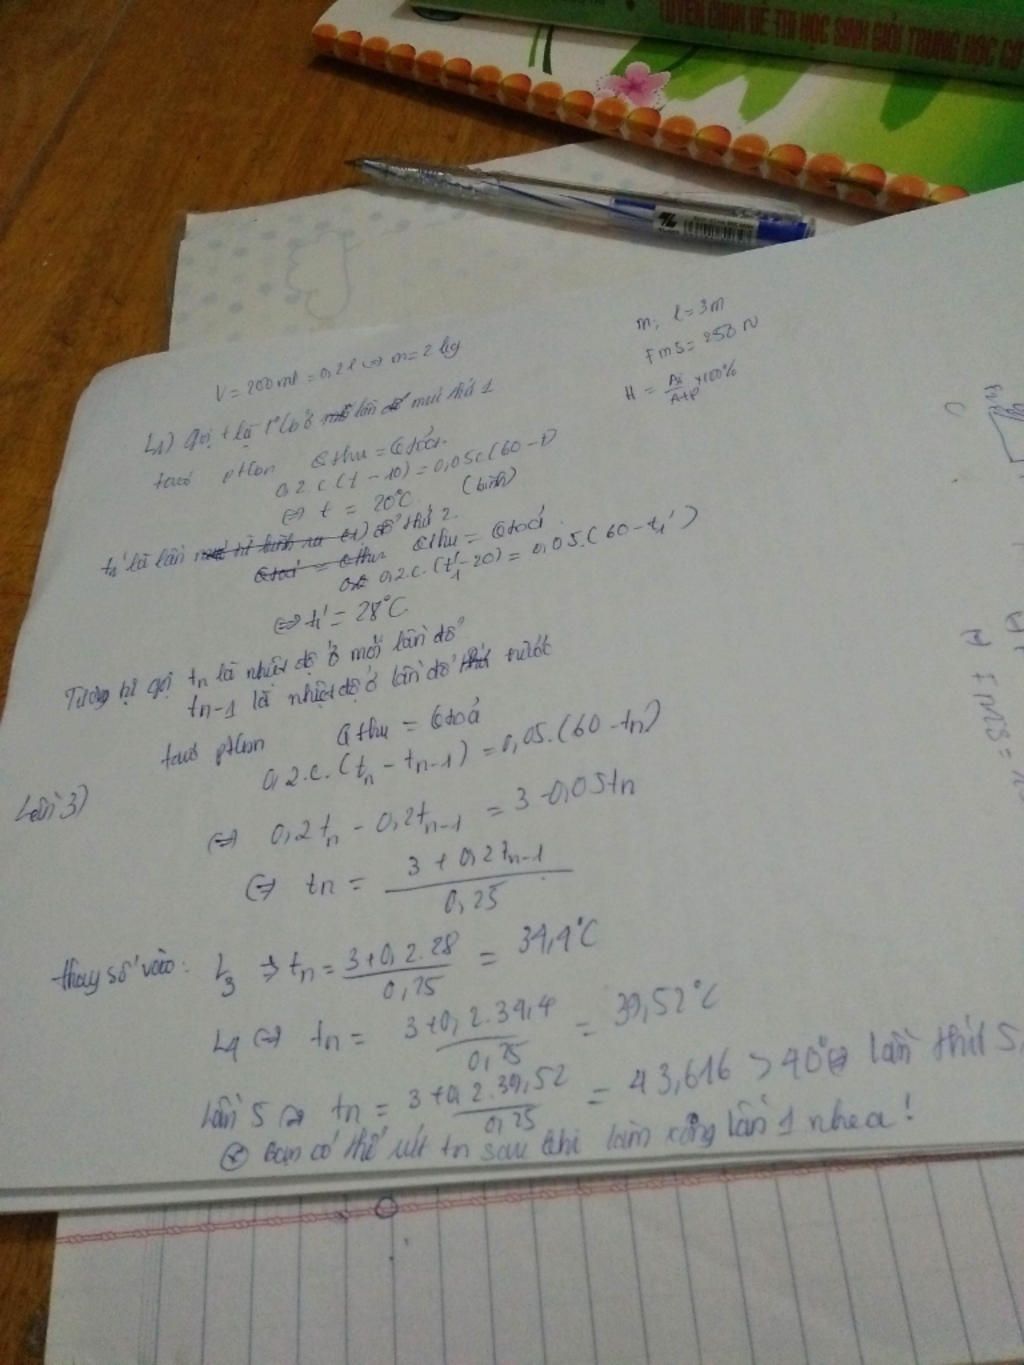 TUYỂN CHỌN ĐỀ THI HỌC SINH GIỎI TRUNG HỌC CƠ
V = 200ml = 0,2l => m = 2 kg
m, l = 3m
Fms = 250 N
H = Ai/Atp x100%
L1) Gọi t là t° cb ở lần đổ mui thứ 1
taco ptcbn Qthu = Qtoả.
0,2.c.(t - 10) = 0,05c(60 - t)
<=> t = 20°C (bình)
t1' là lần đổ thứ 2.
Qthu = Qtoả
0,2.c.(t1' - 20) = 0,05.(60 - t1')
<=> t1' = 28°C
Tương tự gọi tn là nhiệt độ ở mỗi lần đổ
tn-1 là nhiệt độ ở lần đổ trước
taco ptcbn Qthu = Qtoả
0,2.c.(tn - tn-1) = 0,05.(60 - tn)
Lần 3)
<=> 0,2tn - 0,2tn-1 = 3 - 0,05tn
<=> tn = (3 + 0,2tn-1)/0,25
thay số vào: L3 => tn = (3+0,2.28)/0,25 = 34,4°C
L4 <=> tn = (3+0,2.34,4)/0,25 = 39,52°C
Lần 5 => tn = (3+0,2.39,52)/0,25 = 43,616 > 40° lần thứ 5.
* Bạn có thể rút tn sau khi làm xong lần 1 nha!